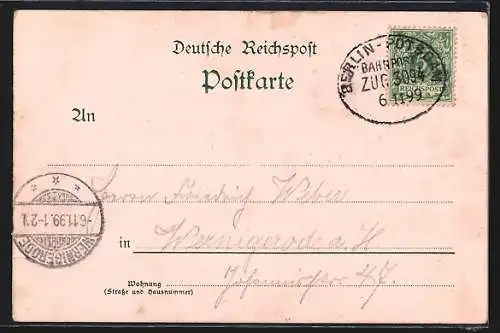 Deutsche Reichspost
Postkarte
BERLIN-POTSDAM
BAHNPOST
ZUG 3034
6.11.99
REICHSPOST
An
Herrn Friedrich Weber
in Wernigerode a. H
WERNIGERODE
-6.11.99.1-2N.
Wohnung
(Straße und Hausnummer)
47.